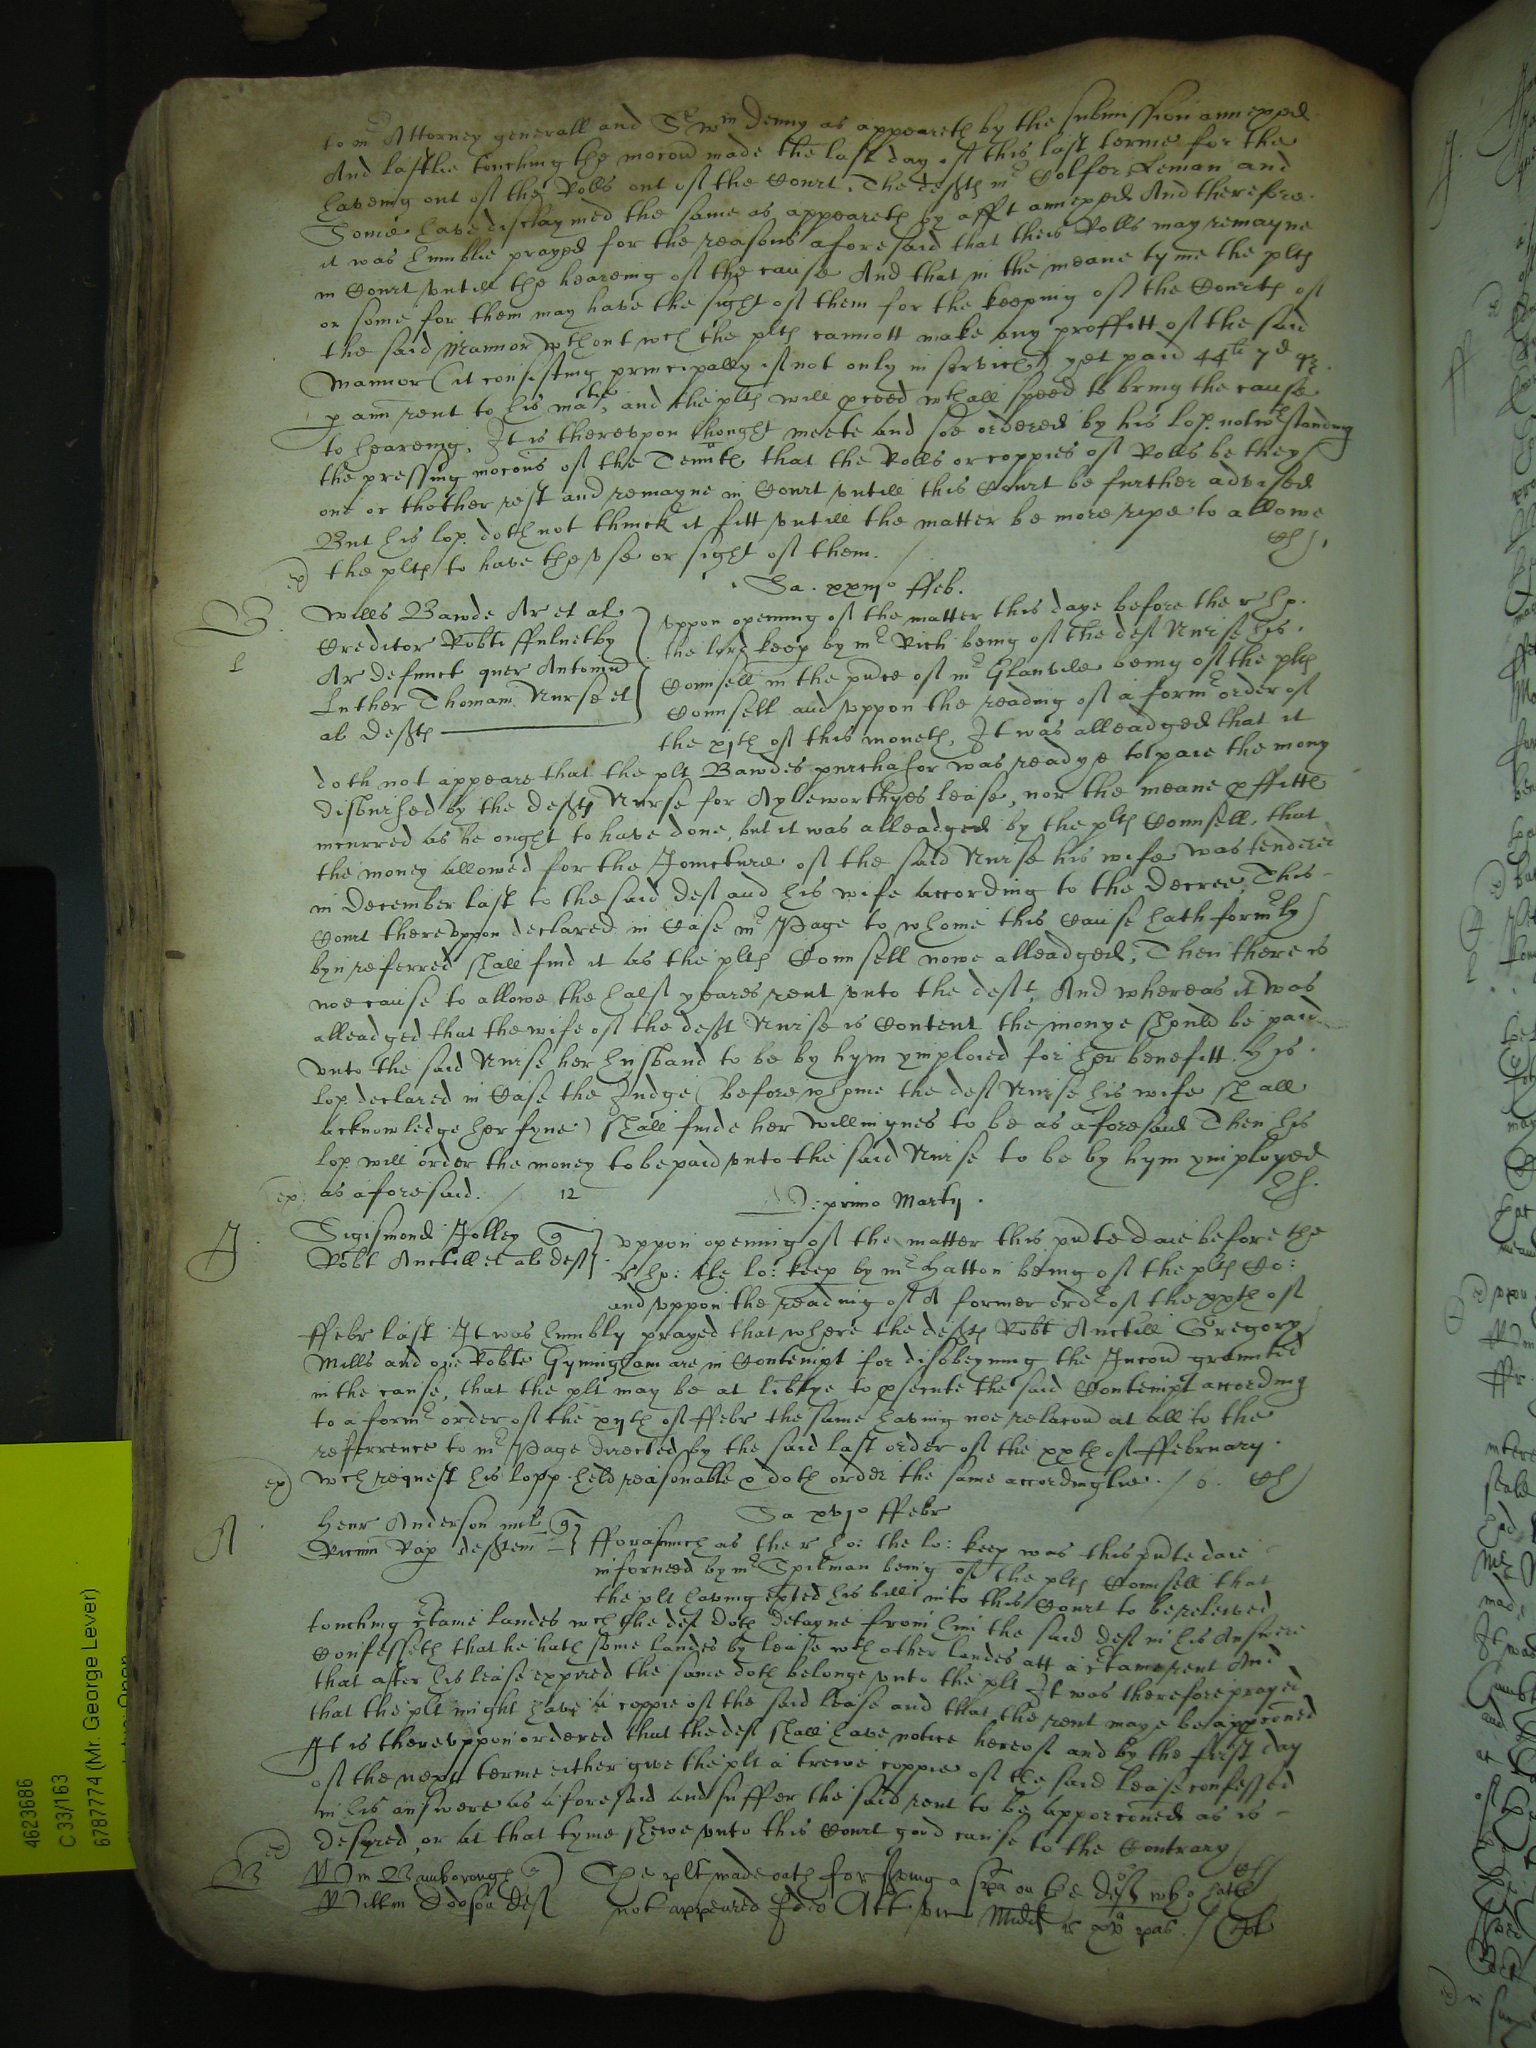 to mr Attorney generall and Sr wm Denny as appeareth by the submission annexed
And lastlie touching the mocon made the last day of this last terme for the
haveing out of the Rolls out of the Court, The defts mr Colfer Leman and
Some have disclaymed the same as appeareth by afft annexed And therefore
it was humblie prayed for the reasons aforesaid that theis Rolls may remayne
in Court untill the heareing of the cause And that in the meane tyme the plts
or some for them may have the sight of them for the keeping of the Courts of
the said Mannor wthout wch the plts cannott make any proffitt of the said
Mannor (it consisting principally if not only in services) yet paid 44li 7d qr
p ann rent to his matie, and the plts will pceed wth all speed to bring the cause
to heareing, It is thereupon thought meete and soe ordered by his lop. notwthstanding
the pressing mocons of the Tennts that the Rolls or coppies of Rolls be they
one or thother rest and remayne in Court untill this Court be further advised
But his lop. doth not thinck it fitt untill the matter be more ripe to allowe
ex) the plts to have the use or sight of them. /
Sa. xxiijo ffeb.
B
Wills Bawde Ar et al
Creditor Robti ffulnetby
Ar defunct quer Antonin
Luther Thomam Nurse et
al defts
l
uppon opening of the matter this daye before the r ho.
the lord keep by mr Rich being of the deft Nurse his
Counsell in the pnce of mr Glanvile being of the plts
Counsell and uppon the reading of a formr order of
the xjth of this moneth, It was alleadged that it
doth not appeare that the plt Bawdes purchasor was readye to paie the mony
disbursed by the deft Nurse for Ayleworthyes lease, nor the meane pffitts
incurred as he ought to have done, but it was alleadged by the plts Counsell, that
the money allowed for the Joincture of the said Nurse his wife was tendered
in December last to the said deft and his wife according to the Decree, This
Court thereuppon declared in Case mr Page to whome this Cause hath formrly
byn referred shall find it as the plts Counsell nowe alleadged, Then there is
noe cause to allowe the half yeares rent unto the deft, And whereas it was
alleadged that the wife of the deft Nurse is Content the monye should be paid
unto the said Nurse her husband to be by hym ymploied for her benefitt His
lop. declared in Case the Judge (before whome the deft Nurse his wife shall
acknowledge her fyne) shall finde her willingnes to be as aforesaid Then his
lop. will order the money to be paid unto the said Nurse to be by hym ymployed
ex) as aforesaid. / 12
D: primo Martij.
J
Sigismond Jolley q
Robt Anctill et al deft
uppon opening of the matter this pnte daie before the
r ho: the lo: keep by mr Hatton being of the plts Co:
and uppon the reading of A former ordr of the xxth of
ffebr last It was humbly prayed that where the defts Robt Anctill Gregory
Mills and one Robte Gynnigham are in Contempt for disobeyning the Injuncon graunted
in the cause, that the plt may be at libtye to psecute the said Contempt according
to a formr order of the xijth of ffebr the same having noe relacon at all to the
referrence to mr Page directed by the said last order of the xxth of ffebruary.
ex) wch request his lopp. held reasonable & doth order the same accordinglie. / o.
Sa xvjo ffebr
A
Henr Anderson mil q
Ricum Rap deftem
fforasmuch as the r ho: the lo: keep was this pnte daie
informed by mr Spilman being of the plts Counsell that
the plt having exted his bill into this Court to be releived
touching ctaine landes wch the deft doth detayne from him the said deft in his Answere
Confesseth that he hath some landes by lease wth other landes att a ctaine rent And
that after his lease expired the same doth belonge unto the plt It was therefore prayed
that the plt might have a coppie of the said lease and that the rent maye be apporconed
It is thereuppon ordered that the deft shall have notice hereof and by the first day
of the next terme either give the plt a trewe coppie of the said lease confessed
in his answere as aforesaid and suffer the said rent to be apporconed as is
desyred, or at that tyme shewe unto this Court good cause to the Contrary
B
Wm Bamborough q
Willm Dodson deft
The plt made oath for serving a spa on the deft who hath
not appeared Ideo Att vic Midd r xv pas /
4623686
C 33/163
6787774 (Mr. George Lever)